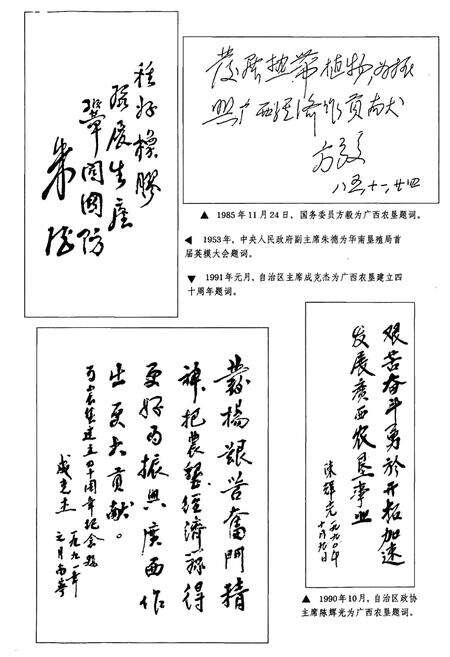 种好橡胶
发展生产
巩固国防
朱德
发展热带植物，为振
兴广西经济作贡献
方毅
八五十一、廿四
▲ 1985年11月24日，国务委员方毅为广西农垦题词。
◀ 1953年，中央人民政府副主席朱德为华南垦殖局首
届英模大会题词。
▼ 1991年元月，自治区主席成克杰为广西农垦建立四
十周年题词。
發揚艱苦奮鬥精
神，把農墾經濟搞得
更好，为振興廣西作
出更大贡献。
建立四十周年纪念题
成克杰 一九九一年
元月南宁
艰苦奋斗勇於开拓加速
发展廣西农垦事业
陈辉光 一九九〇年
十月
▲ 1990年10月，自治区政协
主席陈辉光为广西农垦题词。